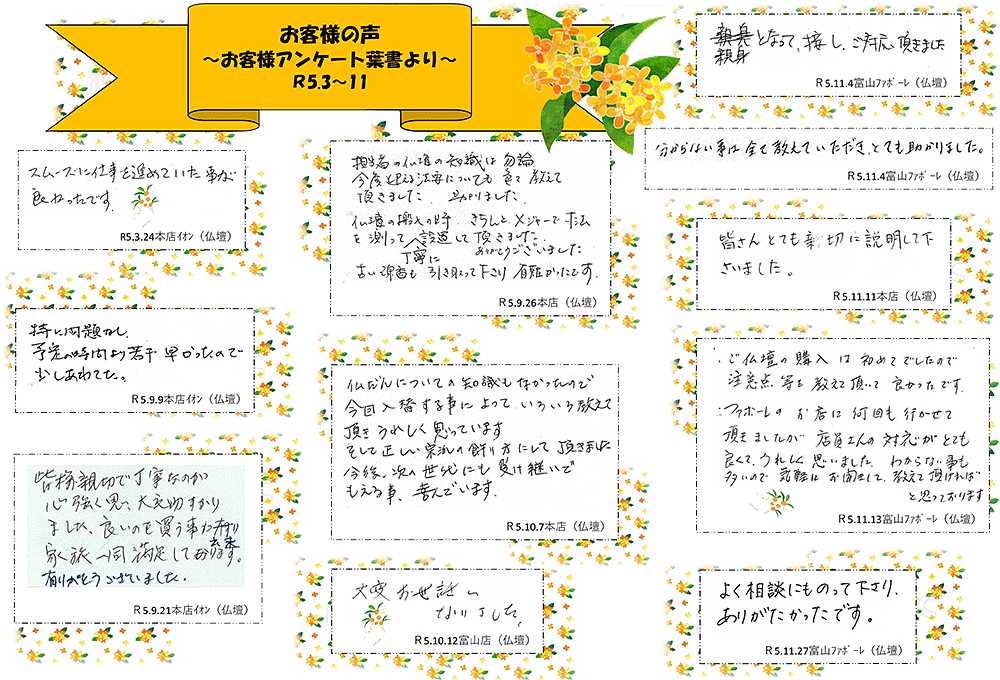 お客様の声
～お客様アンケート葉書より～
R5.3～11
スムーズに仕事を進めていた事が
良かったです。
R5.3.24本店ｲｵﾝ（仏壇）
特に問題なし
予定の時間より若干早かったので
少しあわてた。
R5.9.9本店ｲｵﾝ（仏壇）
皆様親切で丁寧なのが
心強く思い大変助かり
ました、良いのを買う事が出来
家族一同満足しております。
有りがとうございました。
R5.9.21本店ｲｵﾝ（仏壇）
担当者の仏壇の知識は勿論
今後迎える法要についても色々教えて
頂きました 助かりました。
仏壇の搬入の時、きちんとメジャーで寸法
を測って、設置して頂きました。
丁寧に ありがとうございました
古い仏壇も引き取って下さり有難かったです。
R5.9.26本店（仏壇）
仏だんについての知識もなかったので
今回入替する事によっていろいろ教えて
頂きうれしく思っています
そして正しい宗派の飾り方にして頂きました
今後、次の世代にも受け継いで
もらえる事、喜んでいます。
R5.10.7本店（仏壇）
大変お世話に
なりました。
R5.10.12富山店（仏壇）
親身となって、接し、ご対応頂きました
R5.11.4富山ﾌｧﾎﾞｰﾚ（仏壇）
分からない事は全て教えていただき、とても助かりました。
R5.11.4富山ﾌｧﾎﾞｰﾚ（仏壇）
皆さんとても親切に説明して下
さいました。
R5.11.11本店（仏壇）
・ご仏壇の購入は初めてでしたので
注意点等を教えて頂いて良かったです。
・ファボーレのお店に何回も行かせて
頂きましたが店員さんの対応がとても
良くて、うれしく思いました。わからない事も
多いので気軽にお聞きして、教えて頂ければ
と思っております
R5.11.13富山ﾌｧﾎﾞｰﾚ（仏壇）
よく相談にものって下さり、
ありがたかったです。
R5.11.27富山ﾌｧﾎﾞｰﾚ（仏壇）